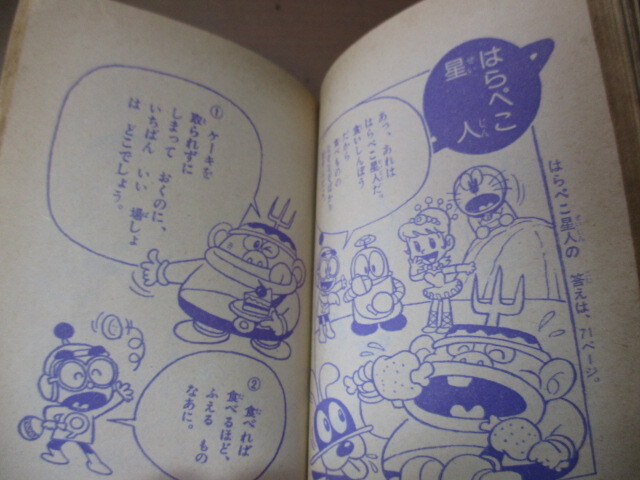 はらぺこ
星人
せい
じん
はらぺこ星人の 答えは、71ページ。
こた
あっ、あれは
はらぺこ星人だ。
食いしんぼう
だから
食べものの
① ケーキを
取られずに
しまって おくのに、
いちばん いい 場しょ
は どこでしょう。
② 食べれば
食べるほど、
ふえる もの
なあに。